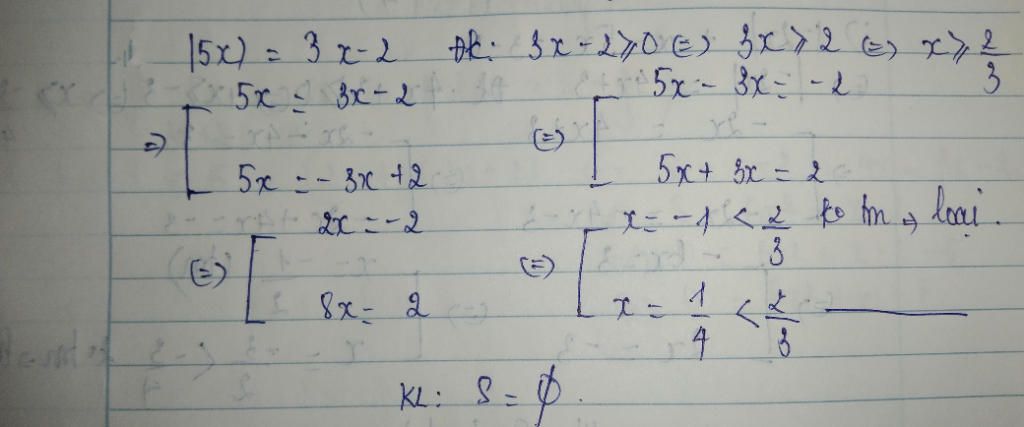 |5x| = 3x - 2 ĐK: 3x - 2 ≥ 0 (=) 3x ≥ 2 (=) x ≥ 2/3
=) [ 5x = 3x - 2 (=) [ 5x - 3x = -2
5x = -3x + 2 5x + 3x = 2
(=) [ 2x = -2 (=) [ x = -1 < 2/3 ko tm → loại.
8x = 2 x = 1/4 < 2/3 ———
KL: S = ∅.